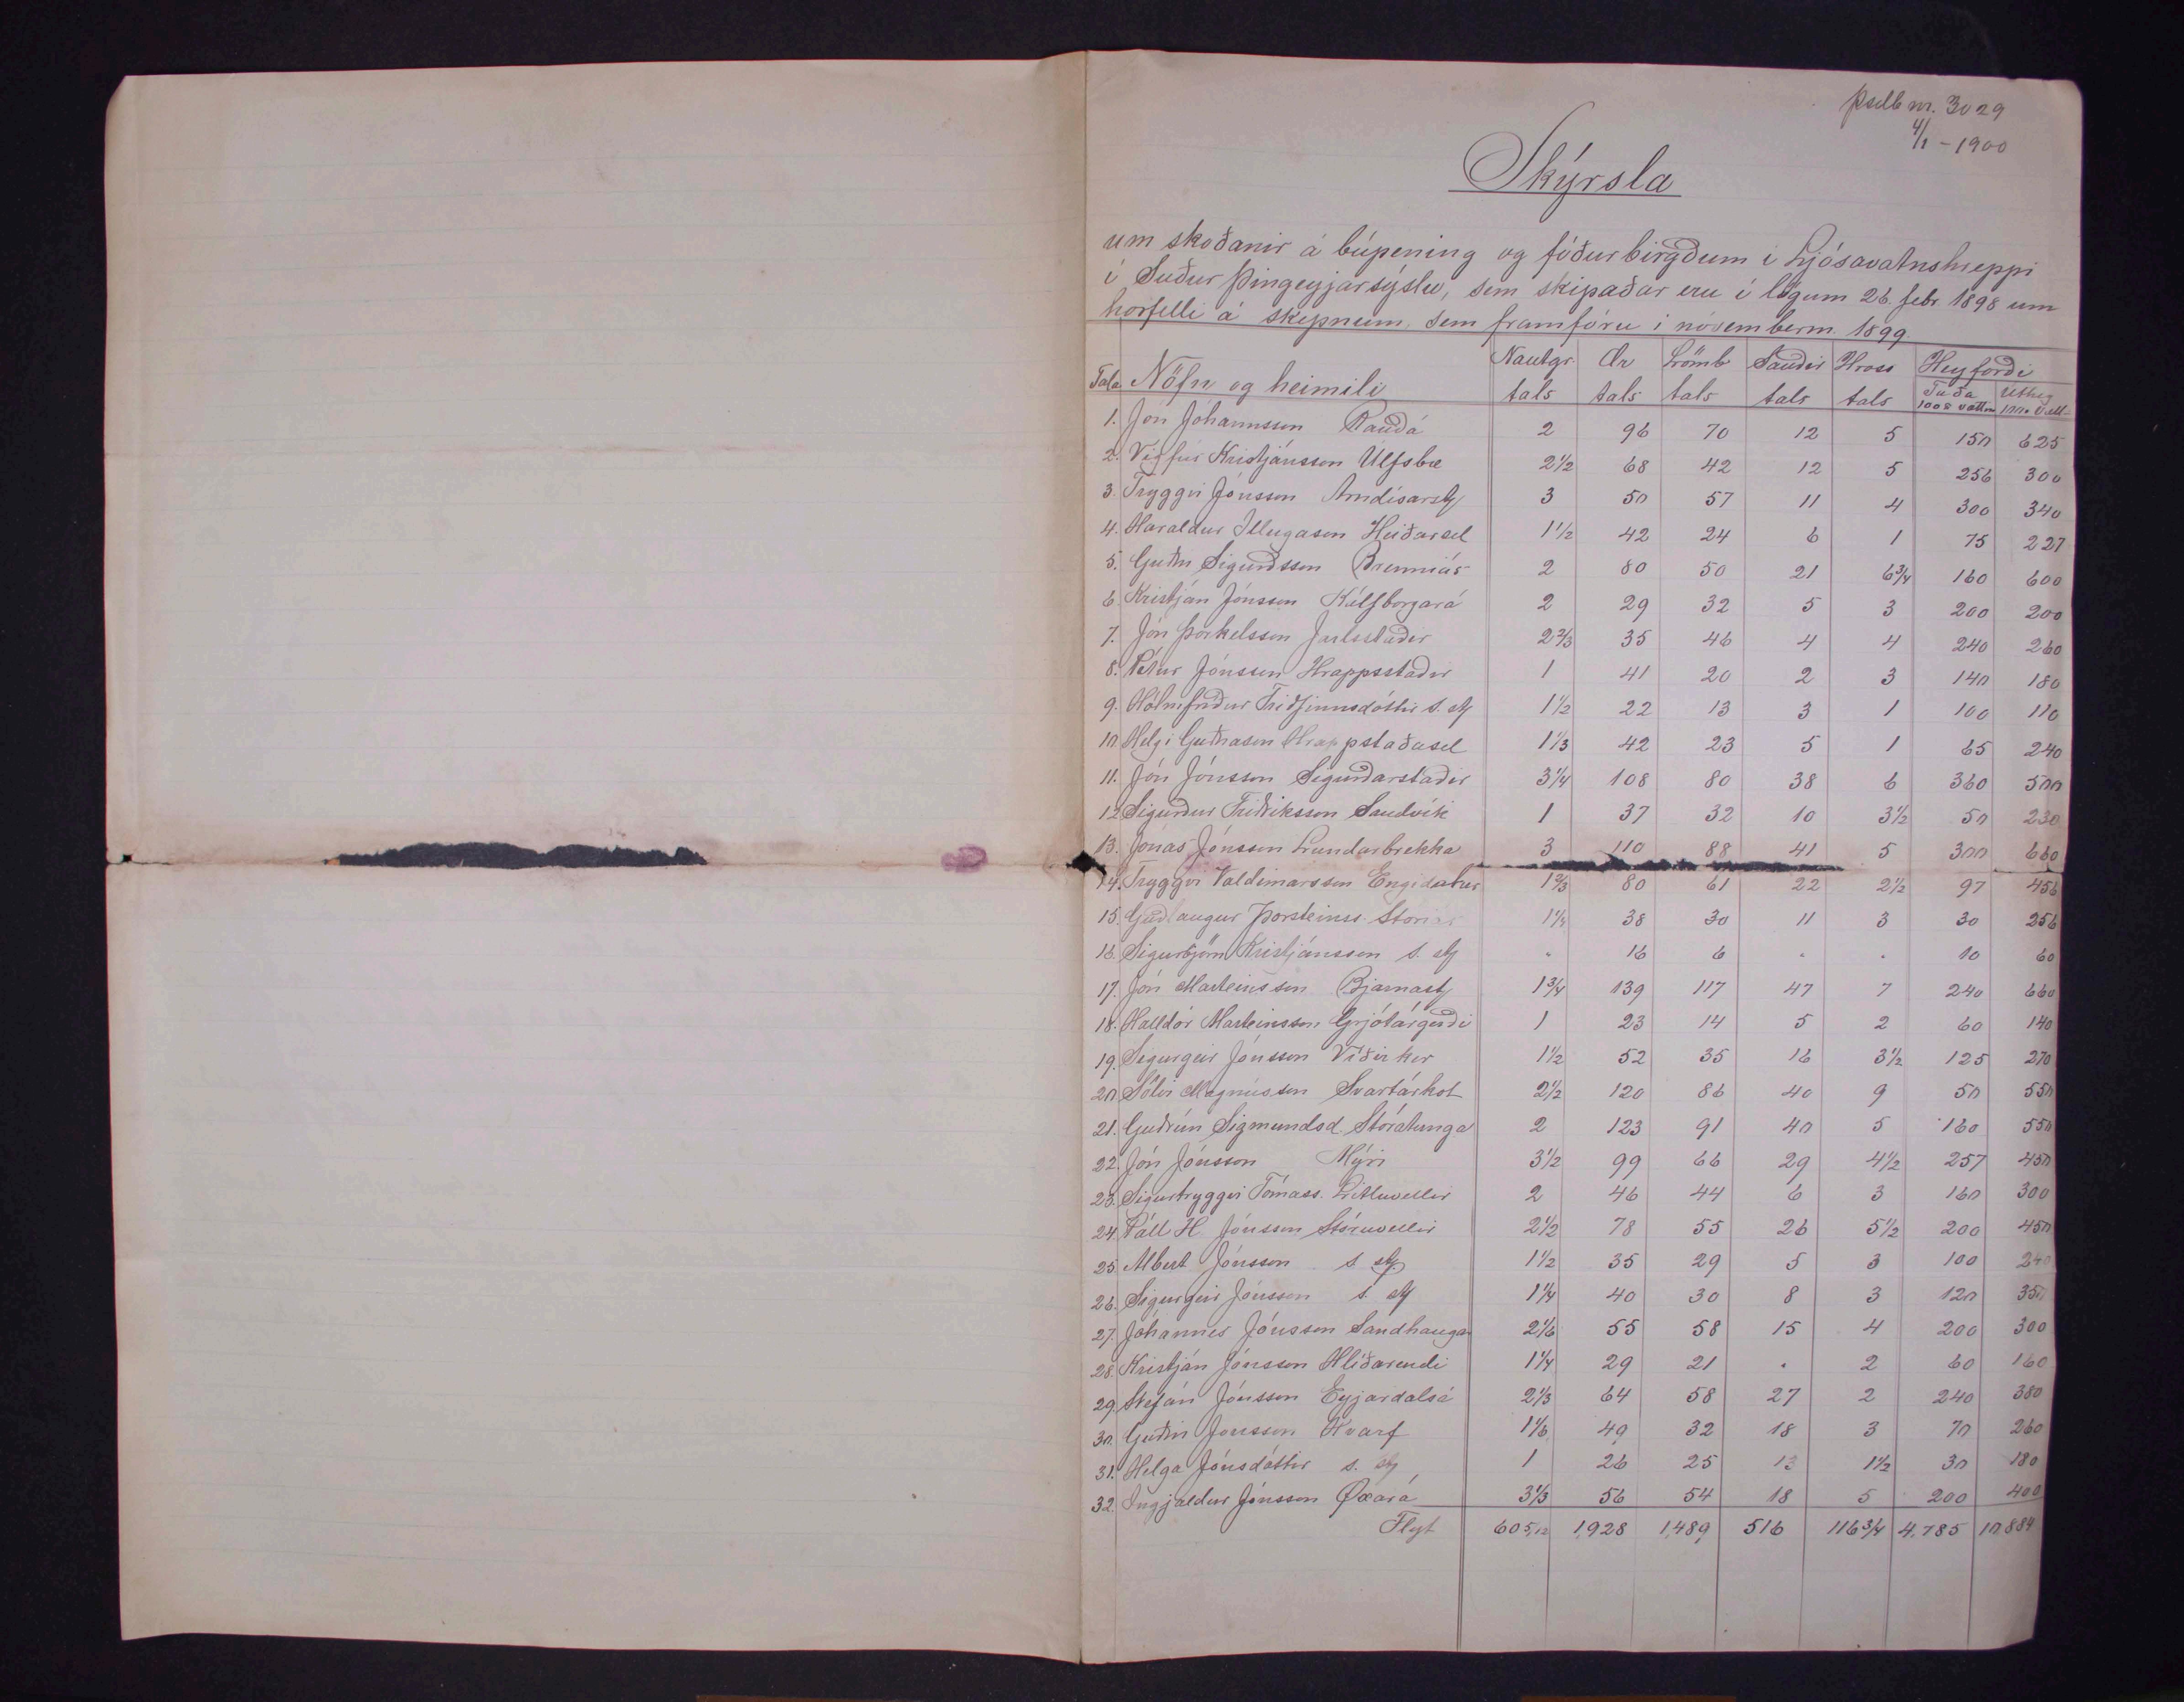 þselb nr. 3029
4/1 - 1900
Skýrsla
um skoðanir á búpening og fóðurbirgðum í Ljósavatnshreppi
í Suður þingeyjarsýslu, sem skipaðar eru í lögum 26. febr. 1898 um
horfelli á skepnum, sem framfóru í novemberm. 1899.
Tala Nöfn og heimili Nautgr. tals Ær tals Lömb tals Sauðir tals Hross tals Heyforði Taða Úthey
1. Jón Jóhannsson Rauðá 2 96 70 12 5 150 625
2. Vigfús Kristjánsson Úlfsbæ 2 1/2 68 42 12 5 256 300
3. Tryggvi Jónsson Arndísarst 3 50 57 11 4 300 340
4. Haraldur Illugason Heiðarsel 1 1/2 42 24 6 1 75 227
5. Guðni Sigurðsson Brenniás 2 80 50 21 6 3/4 160 600
6. Kristján Jónsson Kálfborgará 2 29 32 5 3 200 200
7. Jón Þorkelsson Jarlsstaðir 2 2/3 35 46 4 4 240 260
8. Pétur Jónsson Hrappsstaðir 1 41 20 2 3 140 180
9. Hólmfríður Friðfinnsdóttir s. st 1 1/2 22 13 3 1 100 110
10. Helgi Guðnason Hrappstaðasel 1 1/3 42 23 5 1 65 240
11. Jón Jónsson Sigurðarstaðir 3 1/4 108 80 38 6 360 500
12 Sigurður Friðriksson Sandvík 1 37 32 10 3 1/2 50 230
13. Jónas Jónsson Lundarbrekka 3 110 88 41 5 300 660
14. Tryggvi Valdimarsson Engidalur 1 2/3 80 61 22 2 1/2 97 456
15. Guðlaugur Þorsteinss. 1 1/4 38 30 11 3 30 256
16. Sigurbjörn Kristjánsson s. st " 16 6 " " 10 60
17. Jón Marteinsson Bjarnast 1 3/4 139 117 47 7 240 660
18. Halldór Marteinsson Grjótárgerði 1 23 14 5 2 60 140
19. Sigurgeir Jónsson Víðirker 1 1/2 52 35 16 3 1/2 125 270
20 Sölvi Magnússon Svartárkot 2 1/2 120 86 40 9 50 550
21. Guðrún Sigmundsd. Stóratunga 2 123 91 40 5 160 550
22. Jón Jónsson Mýri 3 1/2 99 66 29 4 1/2 257 450
23. Sigurtryggvi Tómass. Litluvellir 2 46 44 6 3 160 300
24. Páll H. Jónsson Stóruvellir 2 1/2 78 55 26 5 1/2 200 450
25. Albert Jónsson s. st 1 1/2 35 29 5 3 100 240
26. Sigurgeir Jónsson s. st 1 1/4 40 30 8 3 120 350
27. Jóhannes Jónsson Sandhaugar 2 1/6 55 58 15 4 200 300
28. Kristján Jónsson Hlíðarendi 1 1/4 29 21 " 2 60 160
29. Stefán Jónsson Eyjardalsá 2 1/3 64 58 27 2 240 380
30 Guðni Jónsson Hvarf 1 1/6 49 32 18 3 70 260
31. Helga Jónsdóttir s. st 1 26 25 13 1 1/2 30 180
32. Ingjaldur Jónsson Øxará 3 1/3 56 54 18 5 200 400
Flyt 60 5/12 1,928 1,489 516 116 3/4 4,785 10,884